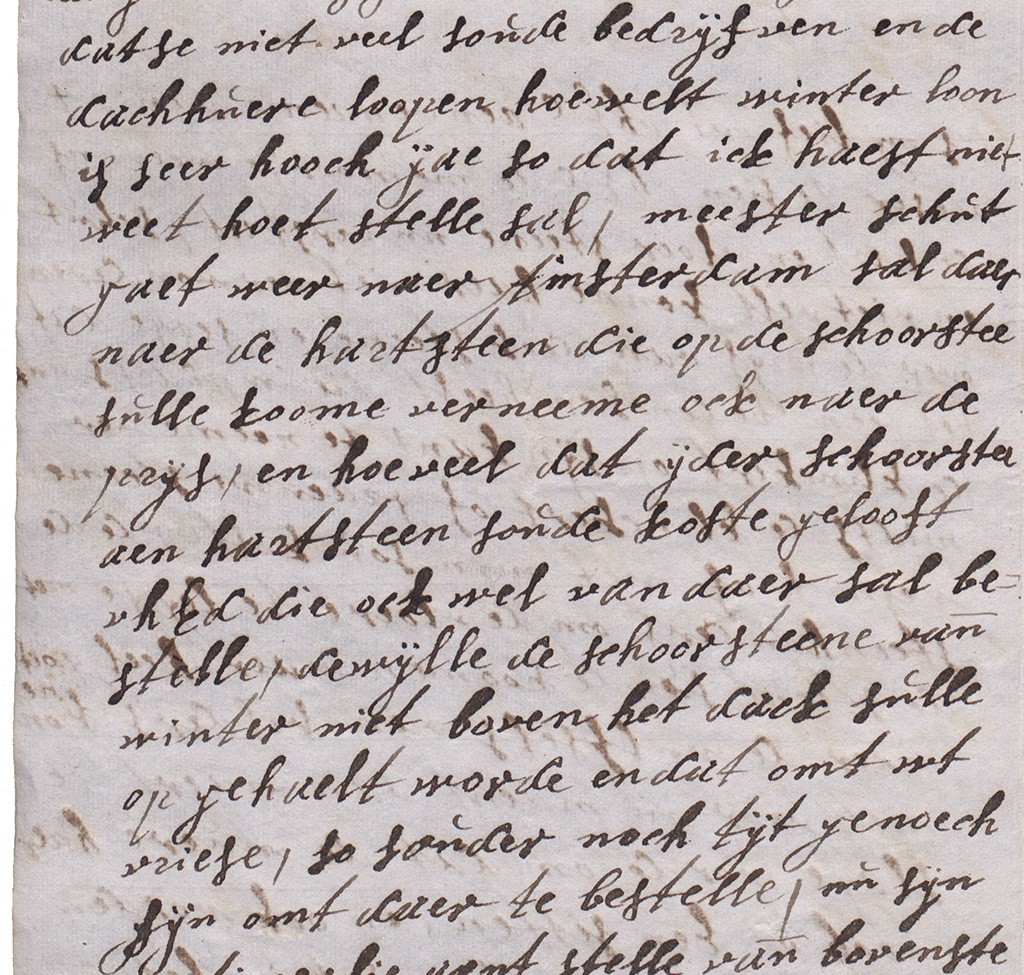 datse niet veel soude bedrijfven ende
dachhuere loopen hoewelt winter loon
is seer hooch ÿae so dat ick haest niet
weet hoet stelle sal, meester schut
gaet weer naer Amsterdam sal daer
naer de hartsteen die op de schoorstee
sulle koome verneeme ock naer de
prÿs, en hoeveel dat ÿder schoorstee
aen hartsteen soude koste geloof t
die ock wel van daer sal be=
stelle, dewÿlle de schoorsteene van
winter niet boven het dack sulle
op gehaelt worde en dat omt wt
vriese, so sonder noch tÿt genoech
sÿn omt daer te bestelle, nu sÿn
aent stelle van bovenste